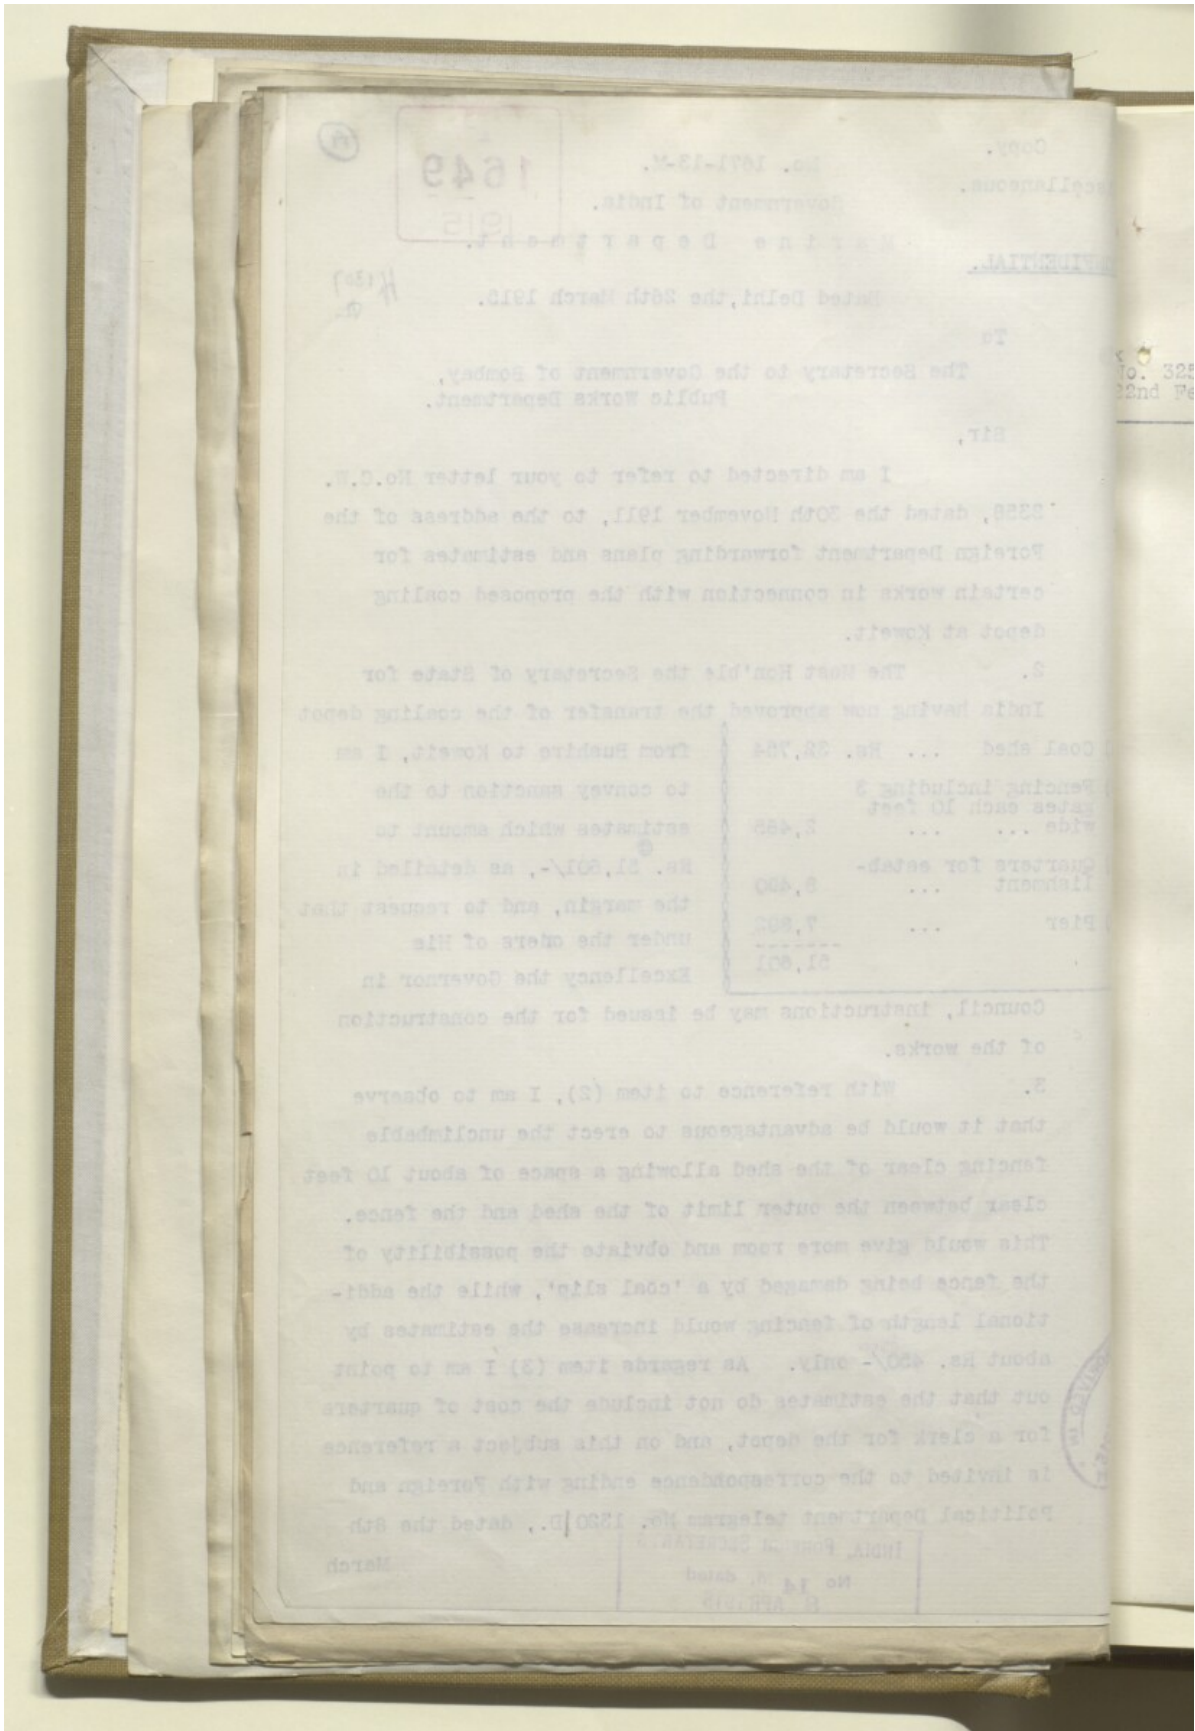 Copy.
No. 1671-13-M.
1649
1915
Government of India.
Marine Department.
CONFIDENTIAL.
Dated Delhi, the 26th March 1915.
To
The Secretary to the Government of Bombay,
Public Works Department.
Sir,
I am directed to refer to your letter No.C.W.
dated the 30th November 1911, to the address of the
Foreign Department forwarding plans and estimates for
certain works in connection with the proposed coaling
depot at Koweit.
2. The Most Hon'ble the Secretary of State for
India having now approved the transfer of the coaling depot
from Bushire to Koweit, I am
to convey sanction to the
estimates which amount to
Rs. 51,601/-, as detailed in
the margin, and to request that
under the orders of His
Excellency the Governor in
Coal shed ... Rs. 32,754
Fencing including 3
gates each 10 feet
wide ... ... 2,485
Quarters for estab-
lishment ...
Pier ...
51,601
Council, instructions may be issued for the construction
of the works.
3. With reference to item (2), I am to observe
that it would be advantageous to erect the unclimbable
fencing clear of the shed allowing a space of about 10 feet
clear between the outer limit of the shed and the fence.
This would give more room and obviate the possibility of
the fence being damaged by a 'coal slip', while the addi-
tional length of fencing would increase the estimates by
about Rs. 450/- only. As regards item (3) I am to point
out that the estimates do not include the cost of quarters
for a clerk for the depot, and on this subject a reference
is invited to the correspondence ending with Foreign and
Political Department telegram No. 1320 D., dated the 8th
March
INDIA, FOREIGN SECRETARY'S
No 14 M, dated
APR 1915
No. 325
22nd Fe